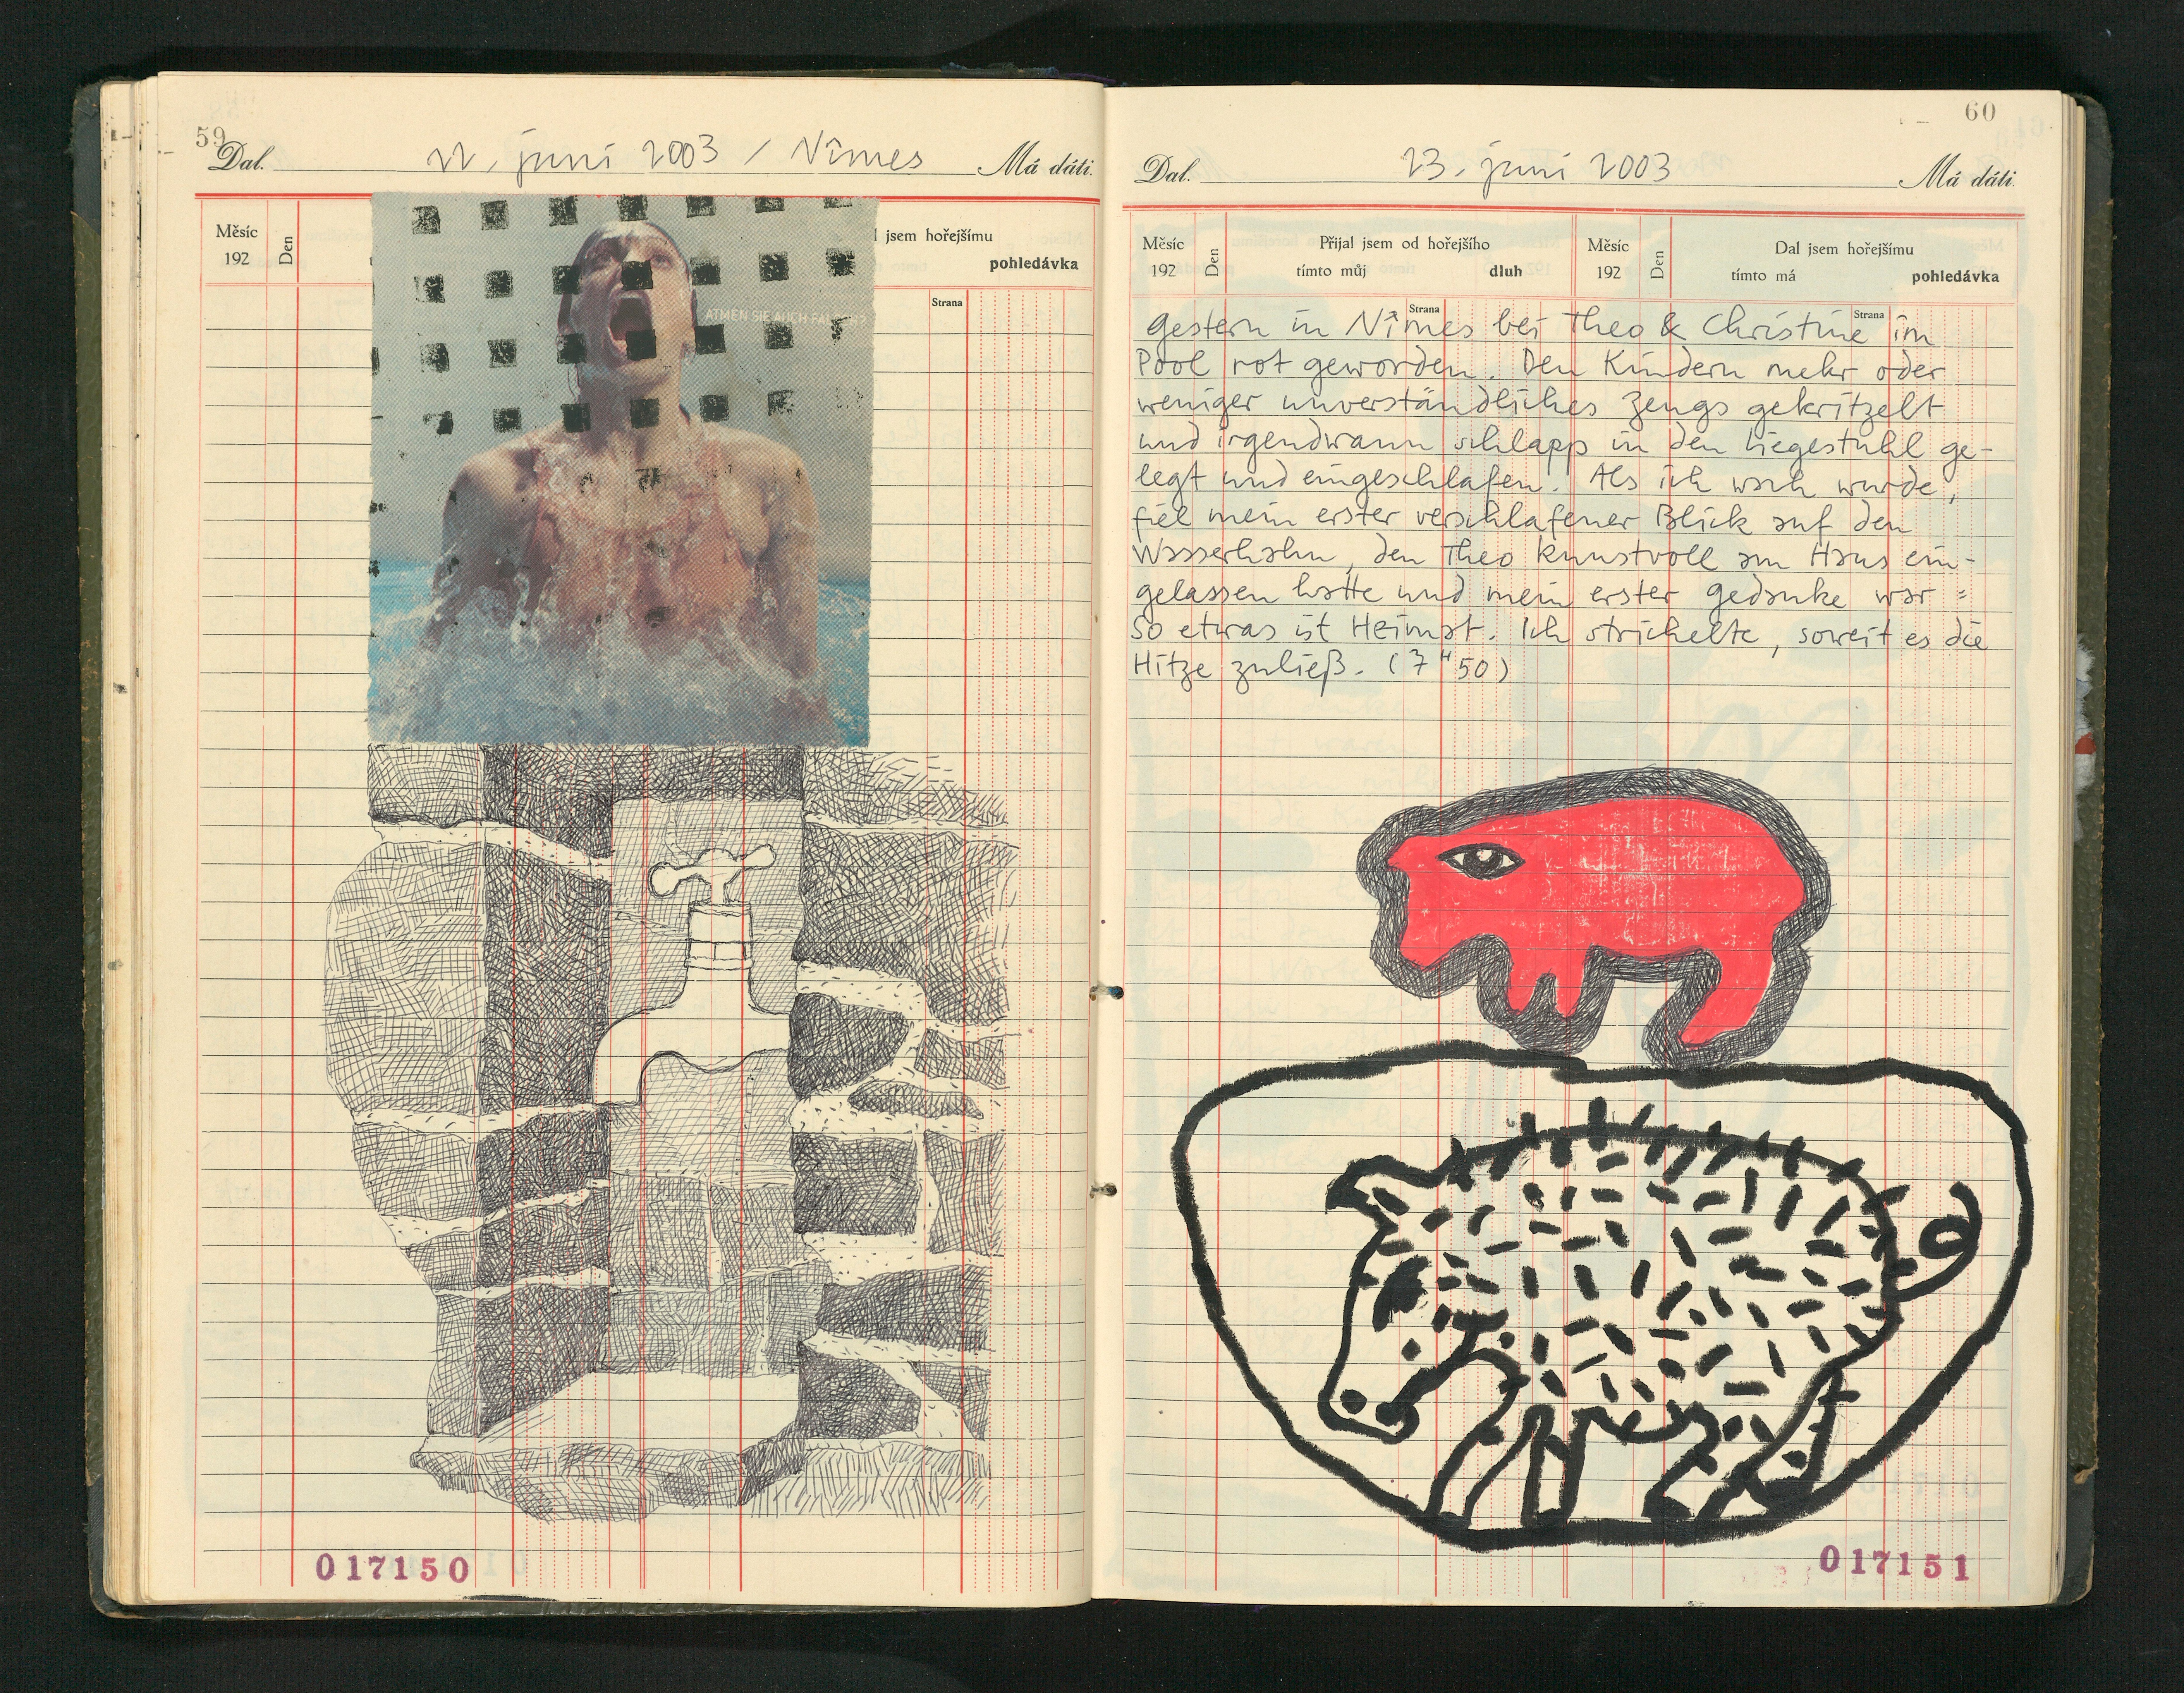 59
Dal. 22. juni 2003 / Nîmes Má dáti.
Měsíc
192
Den
jsem hořejšímu
pohledávka
Strana
ATMEN SIE AUCH FALSCH?
017150
60
Dal. 23. juni 2003 Má dáti.
Měsíc
192
Den
Přijal jsem od hořejšího
tímto můj dluh
Měsíc
192
Den
Dal jsem hořejšímu
tímto má pohledávka
Strana
Strana
Gestern in Nîmes bei Theo & Christine im
Pool rot geworden. Den Kindern mehr oder
weniger unverständliches Zeugs gekritzelt
und irgendwann schlapp in den Liegestuhl ge-
legt und eingeschlafen. Als ich wach wurde,
fiel mein erster verschlafener Blick auf den
Wasserhahn, den Theo kunstvoll am Haus ein-
gelassen hatte und mein erster Gedanke war =
So etwas ist Heimat. Ich strichelte, soweit es die
Hitze zuließ. (7 H 50)
017151